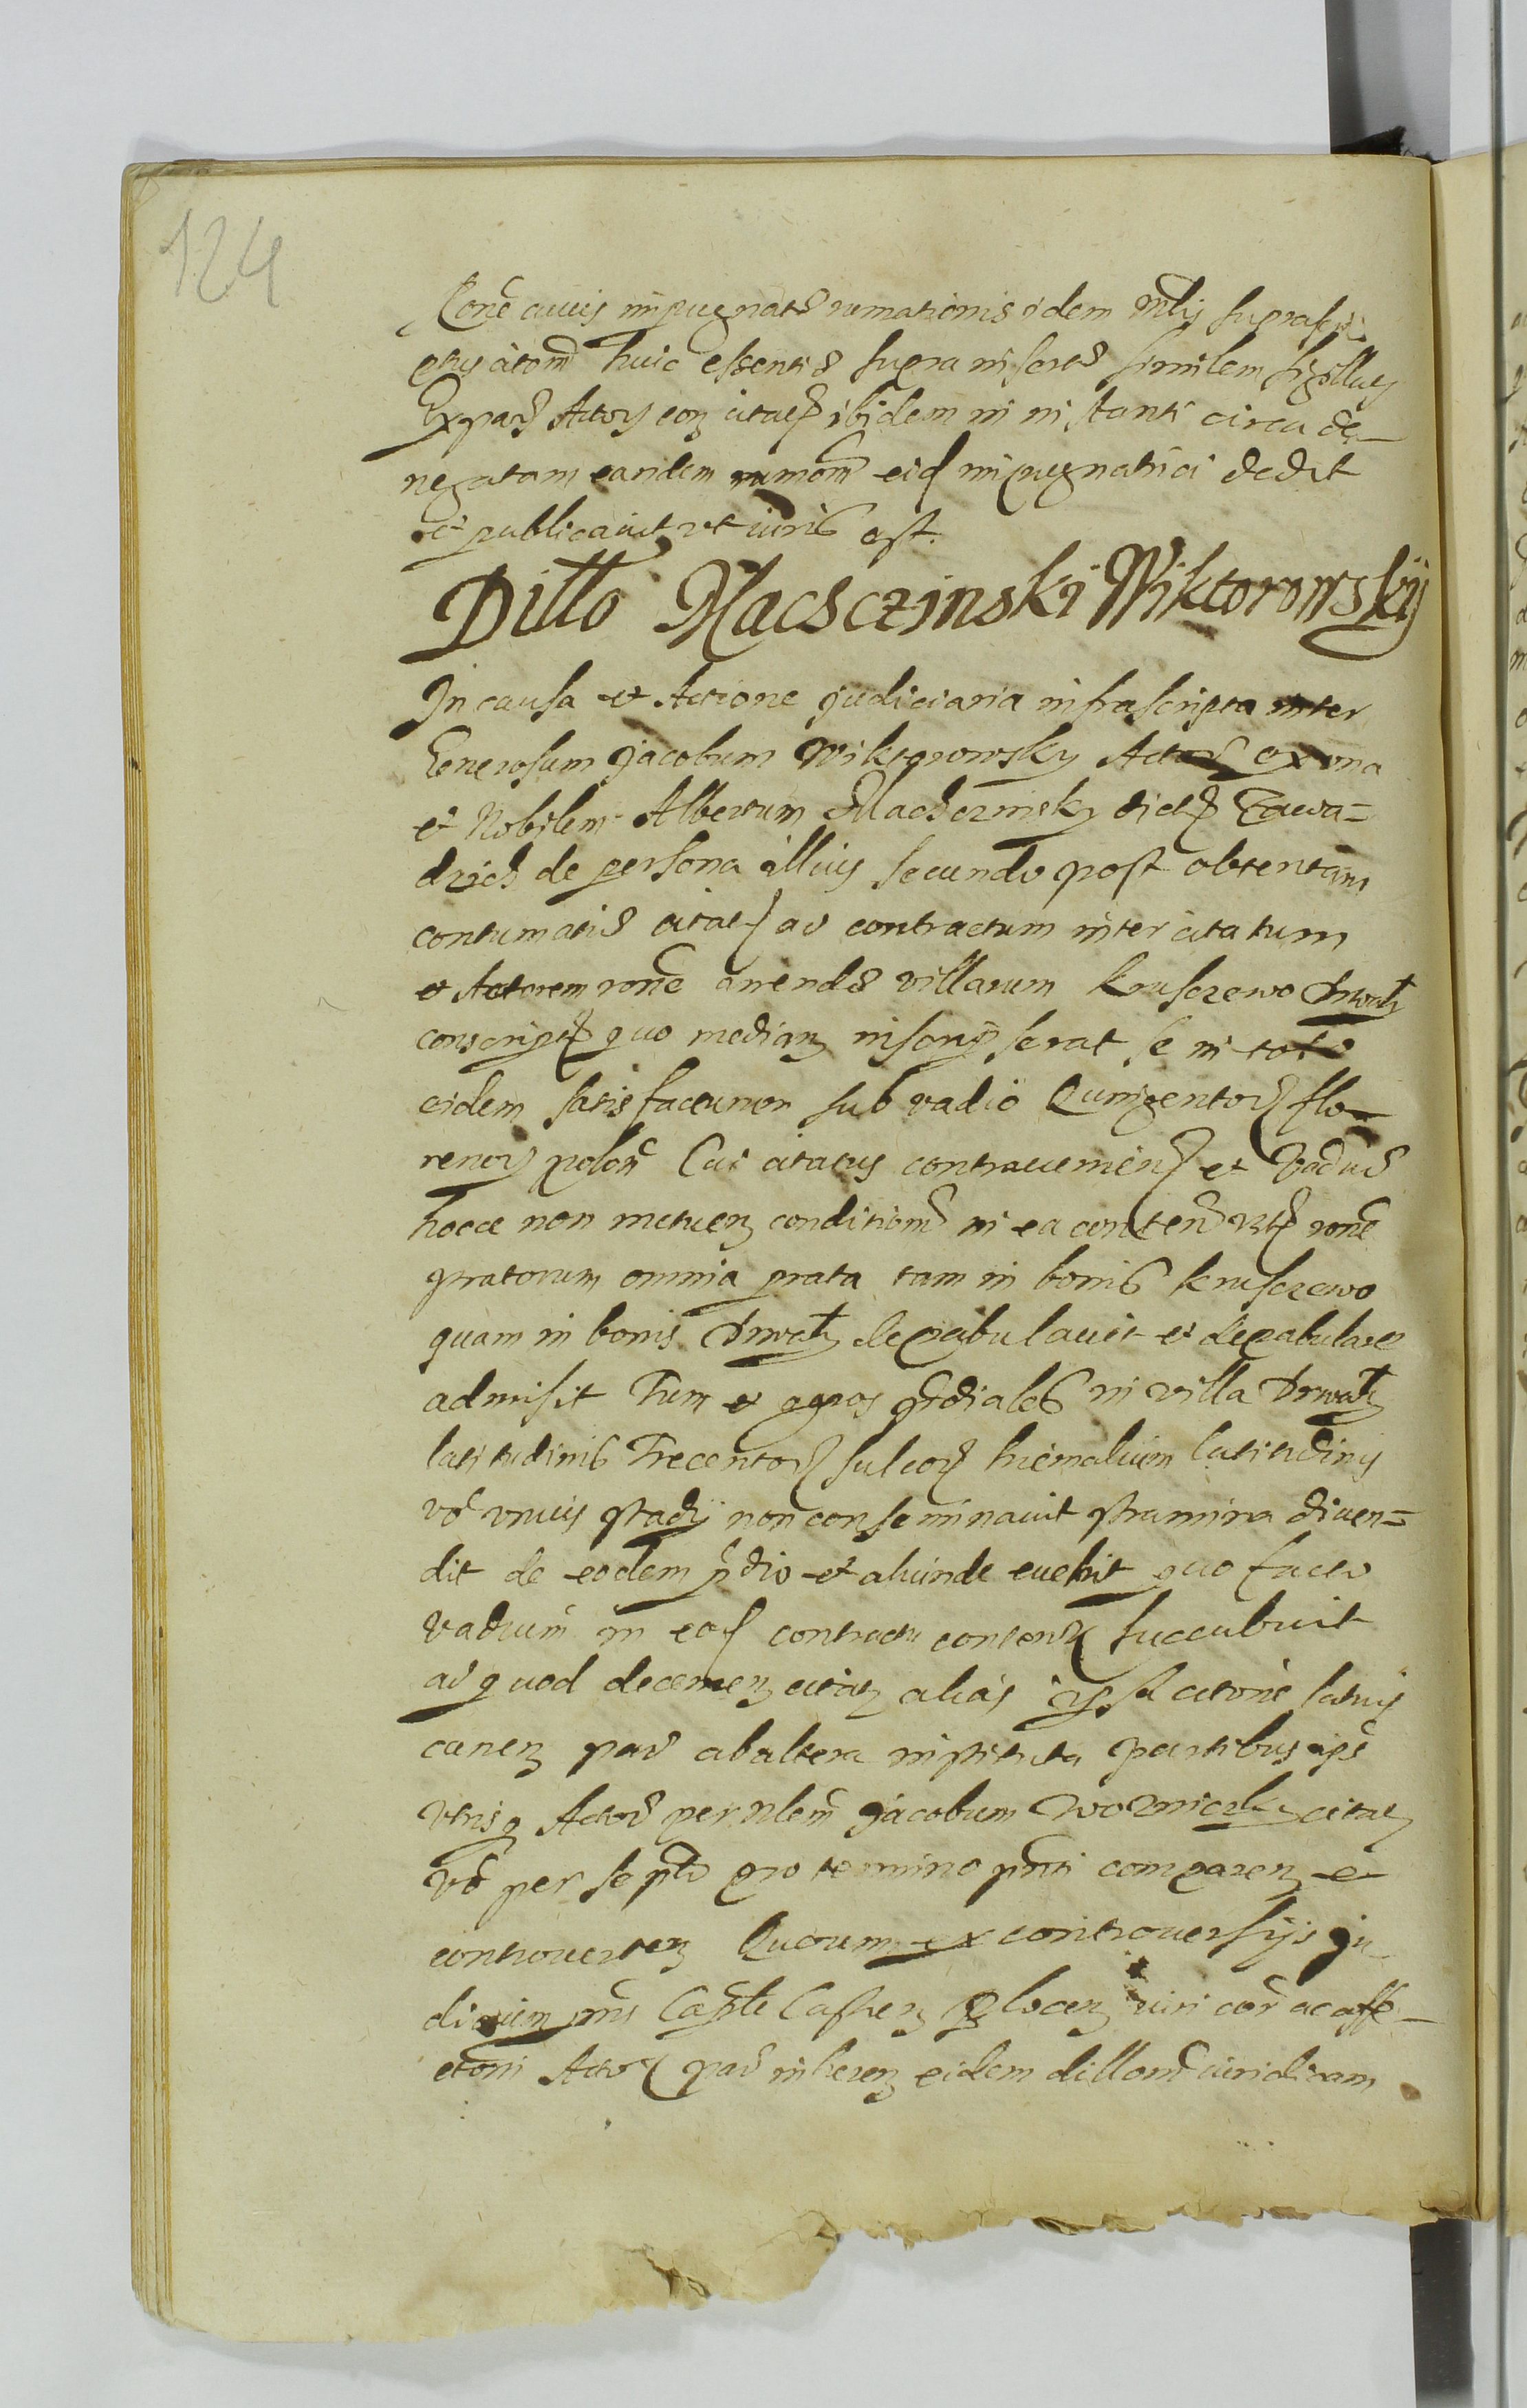 124
cone cuius impugnatae rumationis idem mlis suprascri
ptus atom huic essentiae supra insertae similem sigillatus
Ex pare Actoris eor citatus ibidem in instanti circa de-
negatam eandem rumom eid impugnatrici dedit
et publicavit ut iuris est.
Dillo Macsczinski Wiktorowskÿ
In causa et Actione Judiciaria infrascripta inter
Generosum Jacobum Wiktorowsky Actorem ex una
et Nobilem Albertum Macsczinsky dictum Zawa=
drich de persona illius secundo post obtentam
contumatiae citatum ad contractum inter citatum
et Actorem rone arendae villarum Kruszewo Drwaly
conscriptum quo median inscripserat se in toto
eidem satisfacturum sub vadio Quingentorum flo-
renorum polon Cui citatus contraveniendo et vadium
hocce non metuen conditiom in ea conten vtp rone
pratorum omnia prata tam in bonis Kruszewo
quam in bonis Drwaly depabulavit et depabulare
admisit Tum et agros prdiales in villa Drwaly
latitudinis Trecentorum sulcorum hiemalium latitudinis
vo unius stadÿ non conseminavit stramina diven=
dit de eodem prdio et aliunde evehit quo facto
vadium in eod contractu conten succubuit
ad quod decernen citatus alias ipsa citone latius
canen par ab altera instituta partibus ips
utrisque Actore per nlem Jacobum Wozniczky citatus
vo per se pto pro termino pnti comparen et
controverten Quorum ex controversÿs Ju-
dicium pns Capte Castren Plocen iuri cor ac affe-
ctoni Actor par inheren eidem dillom iuridicam